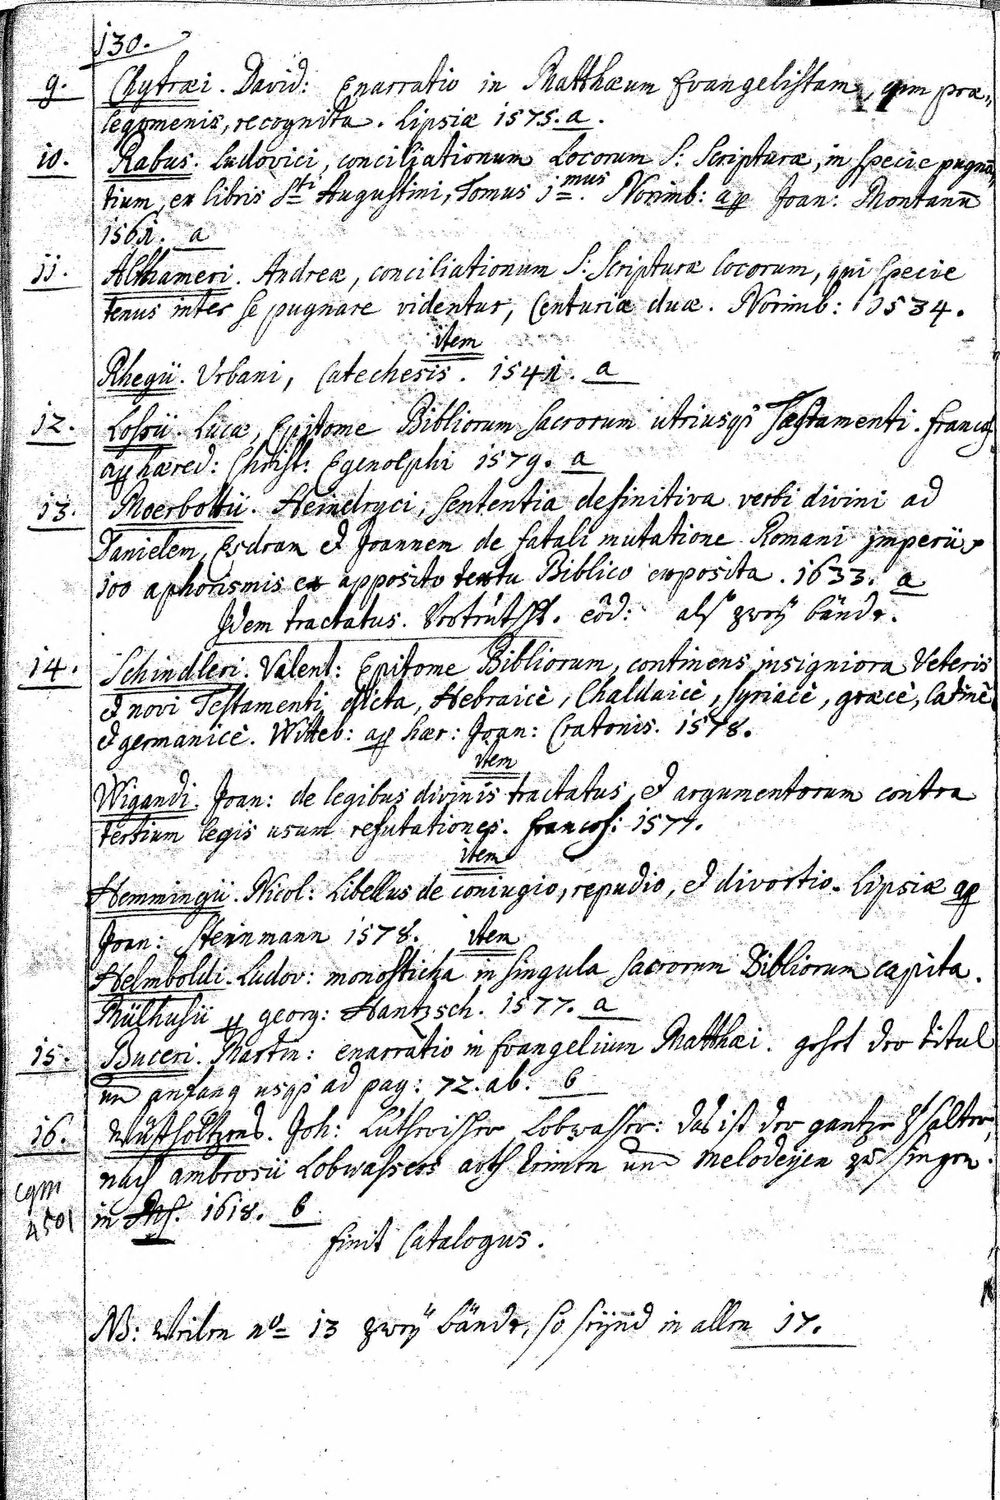 130.
9. Chytræi. David: Enarratio in Matthæum Evangelistam, cum præ„
legomenis, recognita. Lipsiæ 1575. a.
10. Rabus. Ludovici, conciliationum Locorum S: Scripturæ, in specie pugnā
tium, ex libris Sti Augustini, Tomus 1mus. Norimb: ap Joan: Montanū
1561. a
11. Althameri. Andreæ, conciliationum S: Scripturæ locorum, qui specie
tenus inter se pugnare videntur, Centuriæ duæ. Norimb: 1534.
item
Rhegii. Urbani, Catechesis. 1541. a
12. Lossii. Lucæ, Epitome Bibliorum sacrorum utriusq; Testamenti. francof.
ap hæred: Christ: Egenolphi 1579. a
13. Moerbottii. Heindryci, sententia definitiva verbi divini ad
Danielem, Esdram et Joannem de fatali mutatione Romani imperii
100 aphorismis ex apposito textu Biblico exposita. 1633. a
Idem tractatus. eōd: als zwey bände.
14. Schindleri. Valent: Epitome Bibliorum, continens insigniora Veteris
et novi Testamenti dicta, Hebraicè, Chaldaicè, syriacè, græcè, latinè
et germanicè. Witteb: ap hær: Joan: Cratonis. 1578.
item
Wigandi. Joan: de legibus divinis tractatus, et argumentorum contra
tertium legis usum refutationes. francof: 1577.
item
Hemmingii. Nicol: Libellus de coniugio, repudio, et divortio. Lipsiæ ap
Joan: Steinmann 1578. item
Helmboldi. Ludov: monosticha in singula sacrorum Bibliorum capita.
Mülhusii p georg: Hantzsch. 1577. a
15. Buceri. Martin: enarratio in Evangelium Matthæi. gehet der titul
und anfang usq; ad pag: 72. ab. b
16. Wüstholtzens. Joh: Lutherischer Lobwasser: das ist der gantze Psalter,
nach ambrosii Lobwassers arth reimen und melodeyen zu singen.
cgm
4501
in 1618. b
finit Catalogus.
NB: weilen no 13 zwey bände, so seynd in allen 17.